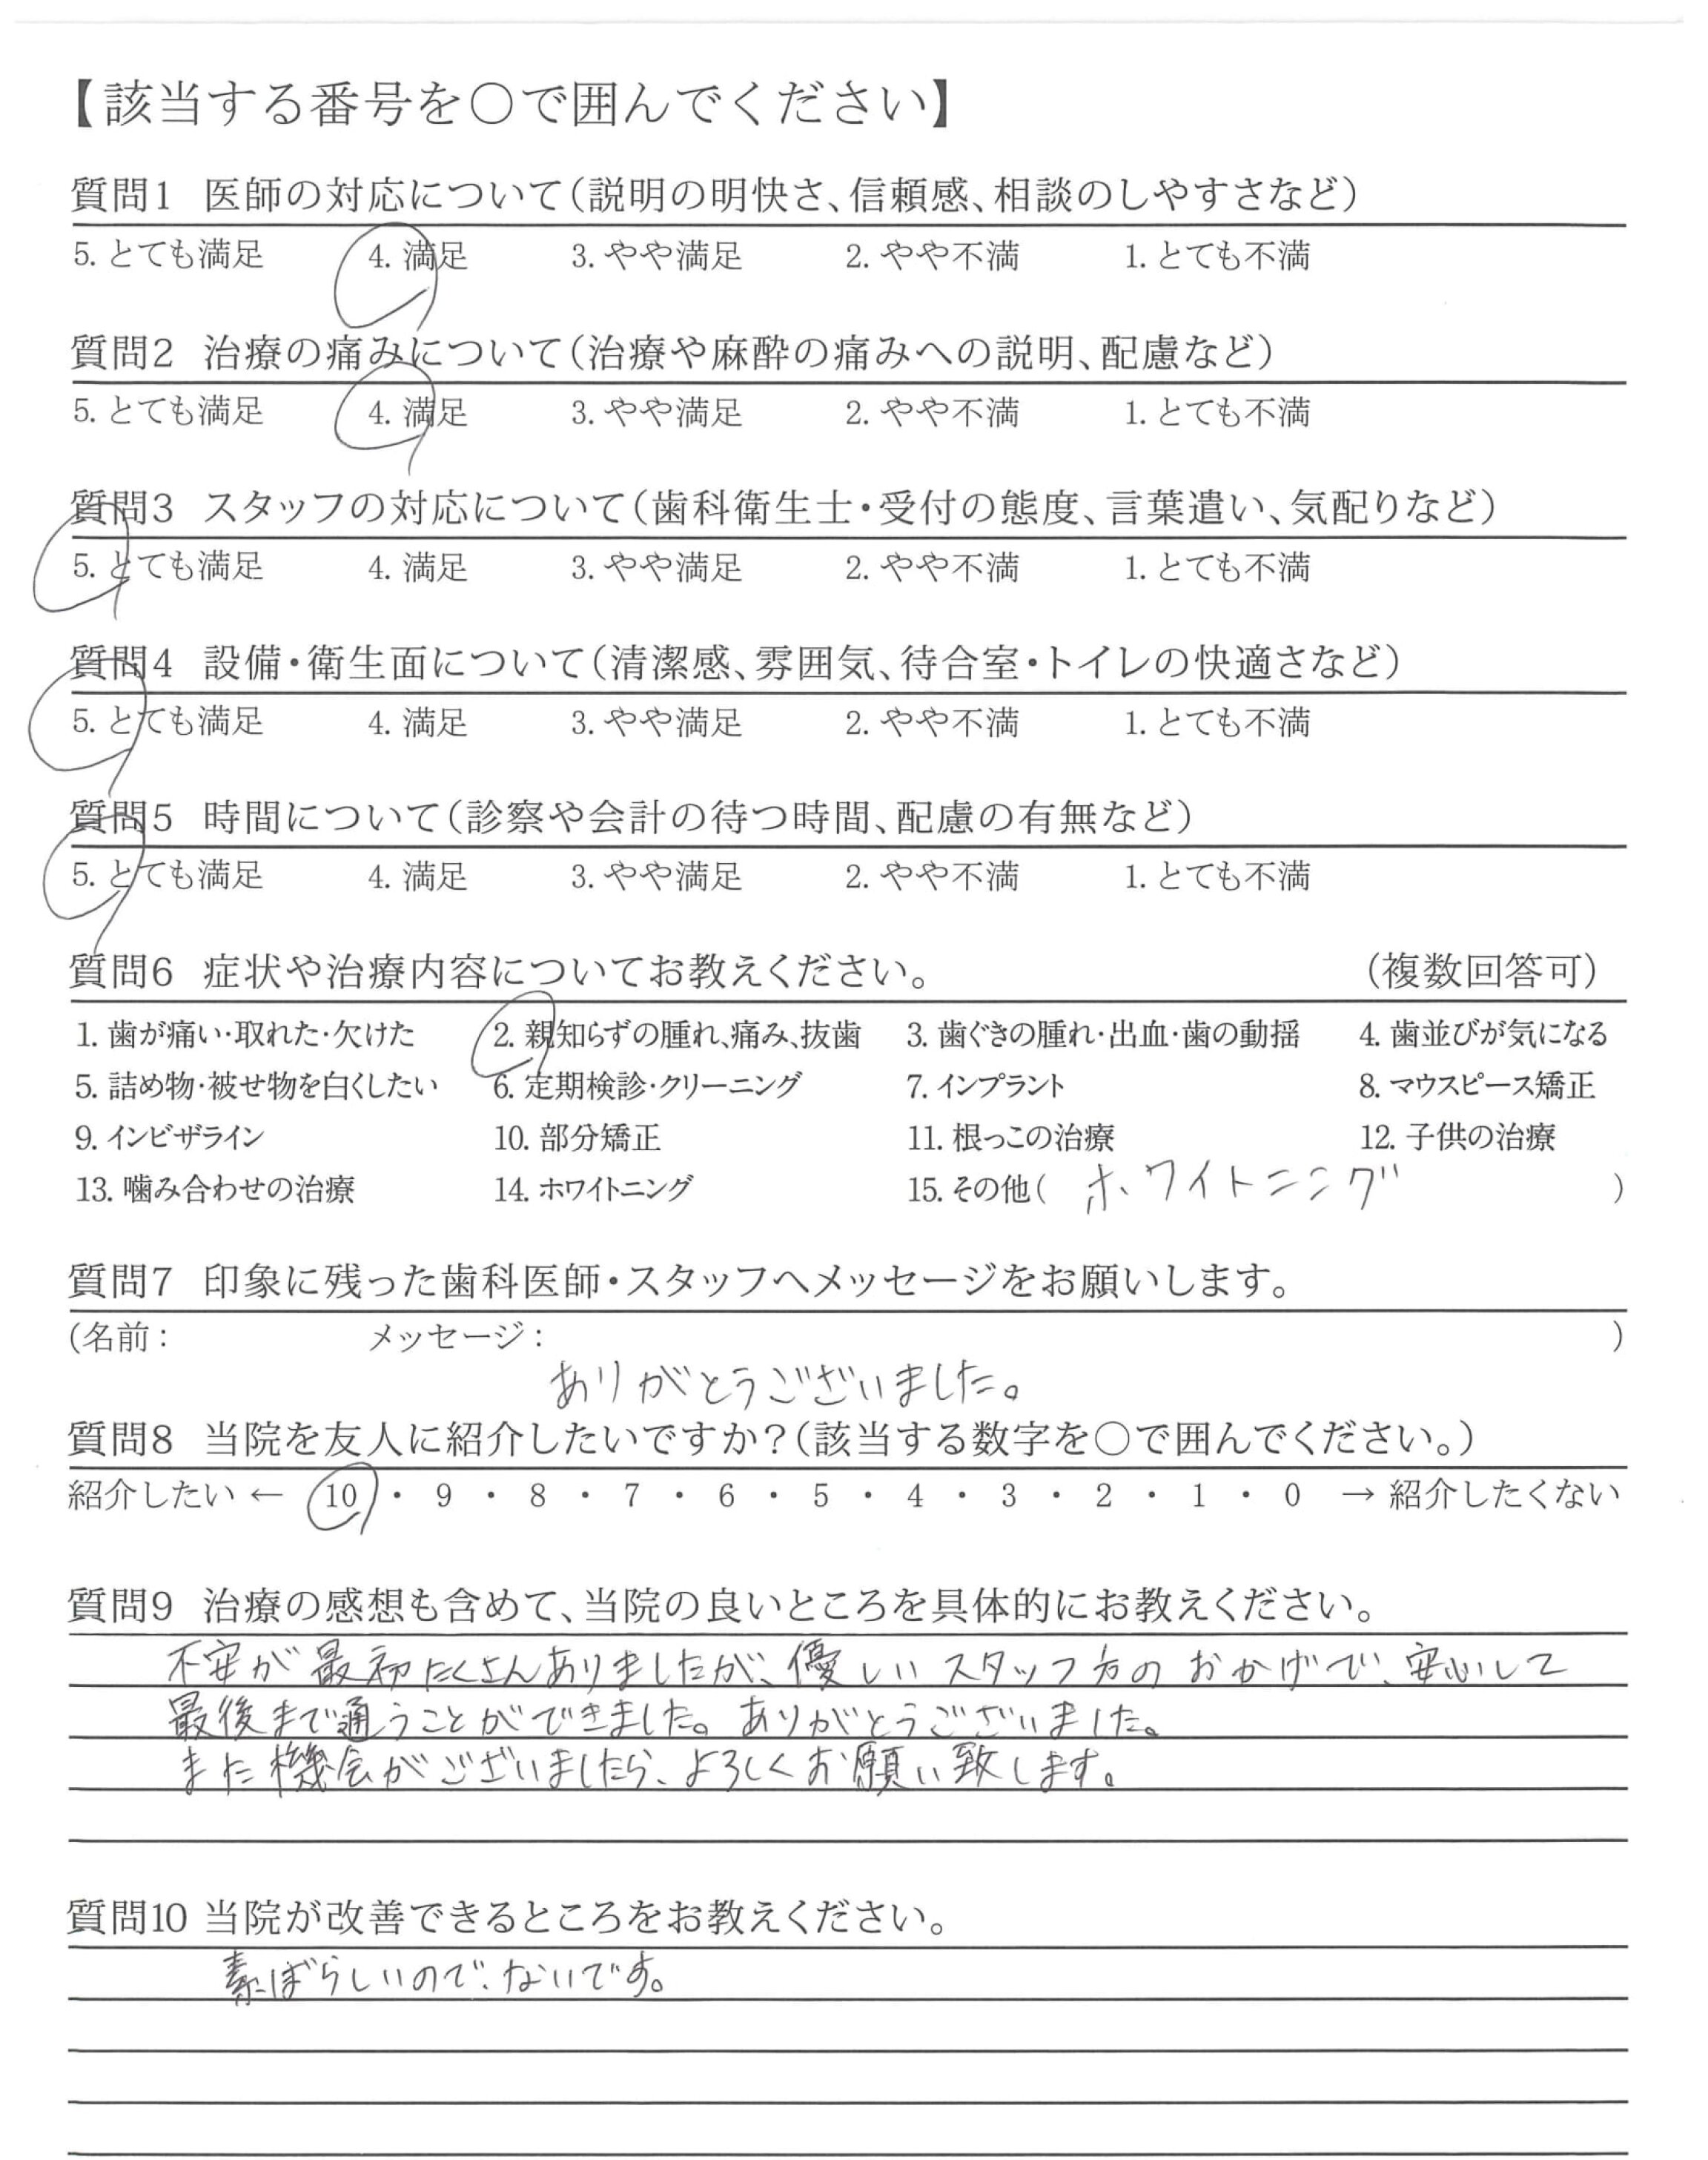 【該当する番号を○で囲んでください】
質問1 医師の対応について(説明の明快さ、信頼感、相談のしやすさなど)
5. とても満足 4. 満足 3. やや満足 2. やや不満 1. とても不満
質問2 治療の痛みについて(治療や麻酔の痛みへの説明、配慮など)
5. とても満足 4. 満足 3. やや満足 2. やや不満 1. とても不満
質問3 スタッフの対応について(歯科衛生士・受付の態度、言葉遣い、気配りなど)
5. とても満足 4. 満足 3. やや満足 2. やや不満 1. とても不満
質問4 設備・衛生面について(清潔感、雰囲気、待合室・トイレの快適さなど)
5. とても満足 4. 満足 3. やや満足 2. やや不満 1. とても不満
質問5 時間について(診察や会計の待つ時間、配慮の有無など)
5. とても満足 4. 満足 3. やや満足 2. やや不満 1. とても不満
質問6 症状や治療内容についてお教えください。 (複数回答可)
1. 歯が痛い・取れた・欠けた 2. 親知らずの腫れ、痛み、抜歯 3. 歯ぐきの腫れ・出血・歯の動揺 4. 歯並びが気になる
5. 詰め物・被せ物を白くしたい 6. 定期検診・クリーニング 7. インプラント 8. マウスピース矯正
9. インビザライン 10. 部分矯正 11. 根っこの治療 12. 子供の治療
13. 噛み合わせの治療 14. ホワイトニング 15. その他( ホワイトニング )
質問7 印象に残った歯科医師・スタッフへメッセージをお願いします。
(名前: メッセージ: )
ありがとうございました。
質問8 当院を友人に紹介したいですか?(該当する数字を○で囲んでください。)
紹介したい ← 10 ・ 9 ・ 8 ・ 7 ・ 6 ・ 5 ・ 4 ・ 3 ・ 2 ・ 1 ・ 0 → 紹介したくない
質問9 治療の感想も含めて、当院の良いところを具体的にお教えください。
不安が最初たくさんありましたが、優しいスタッフ方のおかげで、安心して
最後まで通うことができました。ありがとうございました。
また機会がございましたら、よろしくお願い致します。
質問10 当院が改善できるところをお教えください。
素ばらしいので、ないです。